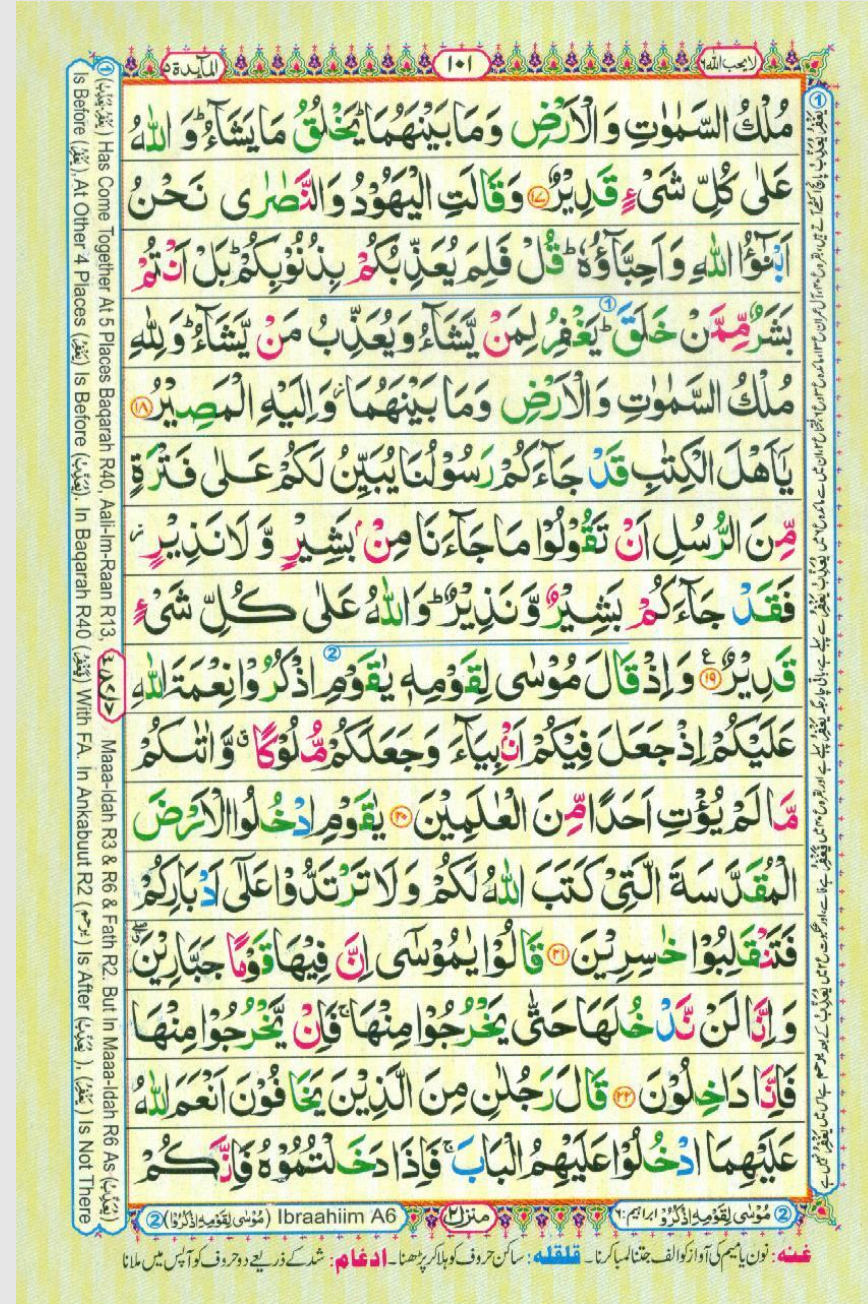 المآئدة ٥
١٠١
لا يحب الله ٦
مُلْكُ السَّمٰوٰتِ وَالْاَرْضِ وَمَا بَيْنَهُمَا ؕ يَخْلُقُ مَا يَشَآءُ ؕ وَ اللّٰهُ
عَلٰى كُلِّ شَیْءٍ قَدِیْرٌ ﴿۱۷﴾ وَقَالَتِ الْیَهُوْدُ وَ النَّصٰرٰى نَحْنُ
اَبْنٰٓؤُا اللّٰهِ وَ اَحِبَّآؤُهٗ ؕ قُلْ فَلِمَ یُعَذِّبُكُمْ بِذُنُوْبِكُمْ ؕ بَلْ اَنْتُمْ
بَشَرٌ مِّمَّنْ خَلَقَ ؕ یَغْفِرُ لِمَنْ یَّشَآءُ وَیُعَذِّبُ مَنْ یَّشَآءُ ؕ وَ لِلّٰهِ
مُلْكُ السَّمٰوٰتِ وَالْاَرْضِ وَمَا بَیْنَهُمَا ؗ وَ اِلَیْهِ الْمَصِیْرُ ﴿۱۸﴾
یٰۤاَهْلَ الْكِتٰبِ قَدْ جَآءَكُمْ رَسُوْلُنَا یُبَیِّنُ لَكُمْ عَلٰى فَتْرَةٍ
مِّنَ الرُّسُلِ اَنْ تَقُوْلُوْا مَا جَآءَنَا مِنْۢ بَشِیْرٍ وَّ لَا نَذِیْرٍ ؗ
فَقَدْ جَآءَكُمْ بَشِیْرٌ وَّ نَذِیْرٌ ؕ وَ اللّٰهُ عَلٰى كُلِّ شَیْءٍ
قَدِیْرٌ ﴿۱۹﴾ ع وَ اِذْ قَالَ مُوْسٰى لِقَوْمِهٖ یٰقَوْمِ اذْكُرُوْا نِعْمَةَ اللّٰهِ
عَلَیْكُمْ اِذْ جَعَلَ فِیْكُمْ اَنْۢبِیَآءَ وَ جَعَلَكُمْ مُّلُوْكًا ۗ وَّ اٰتٰىكُمْ
مَّا لَمْ یُؤْتِ اَحَدًا مِّنَ الْعٰلَمِیْنَ ﴿۲۰﴾ یٰقَوْمِ ادْخُلُوا الْاَرْضَ
الْمُقَدَّسَةَ الَّتِیْ كَتَبَ اللّٰهُ لَكُمْ وَ لَا تَرْتَدُّوْا عَلٰۤى اَدْبَارِكُمْ
فَتَنْقَلِبُوْا خٰسِرِیْنَ ﴿۲۱﴾ قَالُوْا یٰمُوْسٰۤى اِنَّ فِیْهَا قَوْمًا جَبَّارِیْنَ
وَ اِنَّا لَنْ نَّدْخُلَهَا حَتّٰى یَخْرُجُوْا مِنْهَا ۚ فَاِنْ یَّخْرُجُوْا مِنْهَا
فَاِنَّا دَاخِلُوْنَ ﴿۲۲﴾ قَالَ رَجُلٰنِ مِنَ الَّذِیْنَ یَخَافُوْنَ اَنْعَمَ اللّٰهُ
عَلَیْهِمَا ادْخُلُوْا عَلَیْهِمُ الْبَابَ ۚ فَاِذَا دَخَلْتُمُوْهُ فَاِنَّكُمْ
① (يَغْفِرُ، يُعَذِّبُ) Has Come Together At 5 Places Baqarah R40, Aali-Im-Raan R13, Maaa-Idah R3 & R6 & Fath R2. But In Maaa-Idah R6 As (يُعَذِّبُ)
Is Before (يَغْفِرُ), At Other 4 Places (يَغْفِرُ) Is Before (يُعَذِّبُ). In Baqarah R40 (فَيَغْفِرُ) With FA. In Ankabuut R2 (يرحم) Is After (يُعَذِّبُ), (يَغْفِرُ) Is Not There
② مُوْسٰى لِقَوْمِهِ اذْكُرُوْا ابراهيم: ٦
منزل ٢
② (مُوْسٰى لِقَوْمِهِ اذْكُرُوْا) Ibraahiim A6
غنه: نون یا میم کی آواز کو الف جتنا لمبا کرنا۔ قلقله: ساکن حروف کو ہلا کر پڑھنا۔ ادغام: شد کے ذریعے دو حروف کو آپس میں ملانا